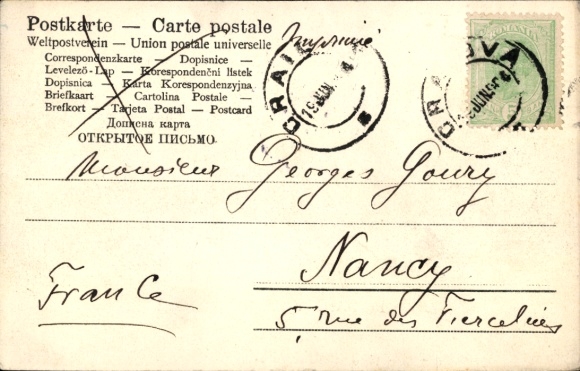 Postkarte — Carte postale
Weltpostverein — Union postale universelle
Correspondenzkarte — Dopisnice —
Levelező-Lap — Korespondenční lístek
Dopisnica — Karta Korespondenzyjna
Briefkaart — Cartolina Postale —
Brefkort — Tarjeta Postal — Postcard
Дописна карта
ОТКРЫТОЕ ПИСЬМО
Imprimé
CRAIOVA
CRAIOVA
ROMANIA
5
Monsieur Georges Goury
Nancy
France
5, rue des Tiercelins